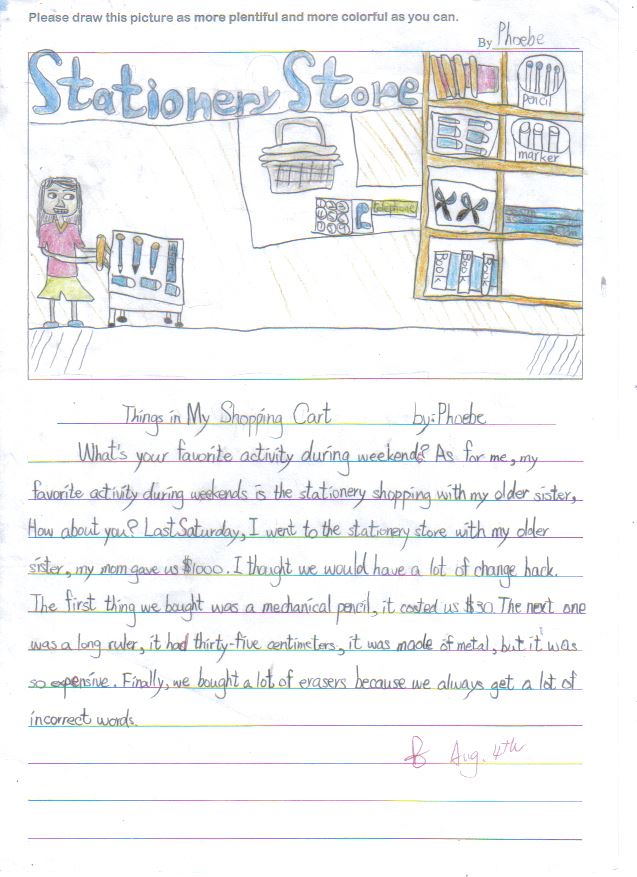 Please draw this picture as more plentiful and more colorful as you can.
By Phoebe
Stationery Store
pencil
marker
telephone
Book Book Book
Things in My Shopping Cart by: Phoebe
What's your favorite activity during weekends? As for me, my
favorite activity during weekends is the stationery shopping with my older sister,
How about you? Last Saturday, I went to the stationery store with my older
sister, my mom gave us $1000. I thought we would have a lot of change back.
The first thing we bought was a mechanical pencil, it costed us $30. The next one
was a long ruler, it had thirty-five centimeters, it was made of metal, but it was
so expensive. Finally, we bought a lot of erasers because we always get a lot of
incorrect words.
Aug. 4th